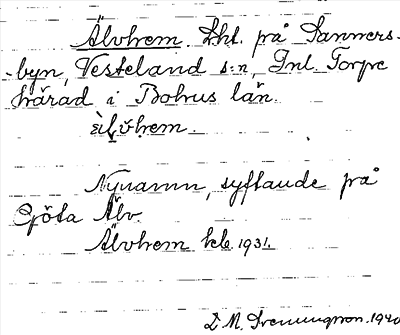 Älvhem. Lht. på Sanners-
-byn, Västeland s:n, Inl. Torpe
härad i Bohus län.
älvhem.
Nynamn, syftande på
Göta Älv.
Älvhem beb. 1931.
M. 1940